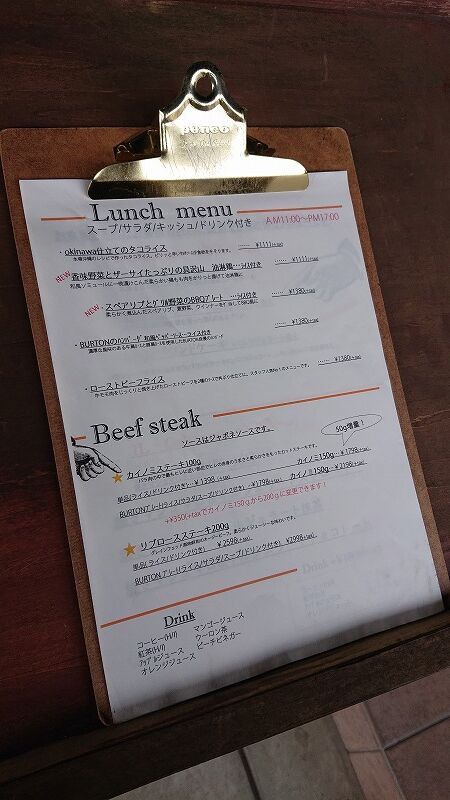 Lunch menu
スープ/サラダ/キッシュ/ドリンク付き AM11:00～PM17:00
・okinawa仕立てのタコライス …… ¥1111(+tax)
NEW 香味野菜とザーサイたっぷりの具沢山 油淋鶏…ライス付き …… ¥1111(+tax)
NEW スペアリブとグリル野菜のBBQプレート …ライス付き …… ¥1380(+tax)
柔らかく煮込んだスペアリブ、夏野菜、ウインナーを
・BURTONのハンバーグ 和風 ライス付き …… ¥1380(+tax)
・ローストビーフライス …… ¥1380(+tax)
Beef steak
ソースはジャポネソースです。
50g増量！
カイノミステーキ100g
単品(ライス/ドリンク付き)…¥1398(+tax) カイノミ150g…¥1798(+tax)
BURTONプレート(ライス/サラダ/スープ/ドリンク付き) …¥1798(+tax) カイノミ150g…¥2198(+tax)
+¥350(+taxでカイノミ150gから200gに変更できます！
リブロースステーキ200g
単品(ライス/ドリンク付き) ¥2598(+tax)
BURTONプレート(ライス/サラダ/スープ/ドリンク付き) ¥2998(+tax)
Drink
コーヒー(H/I) マンゴージュース
紅茶(H/I) ウーロン茶
アップルジュース ピーチビネガー
オレンジジュース